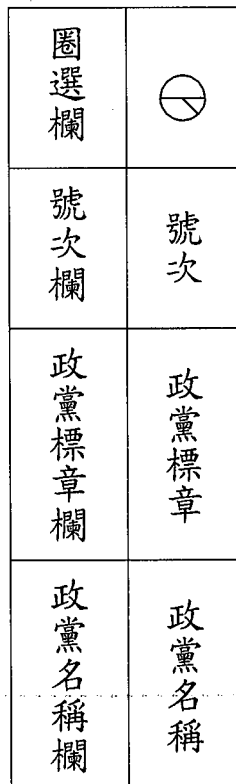 圈選欄
號次欄
號次
政黨標章欄
政黨標章
政黨名稱欄
政黨名稱